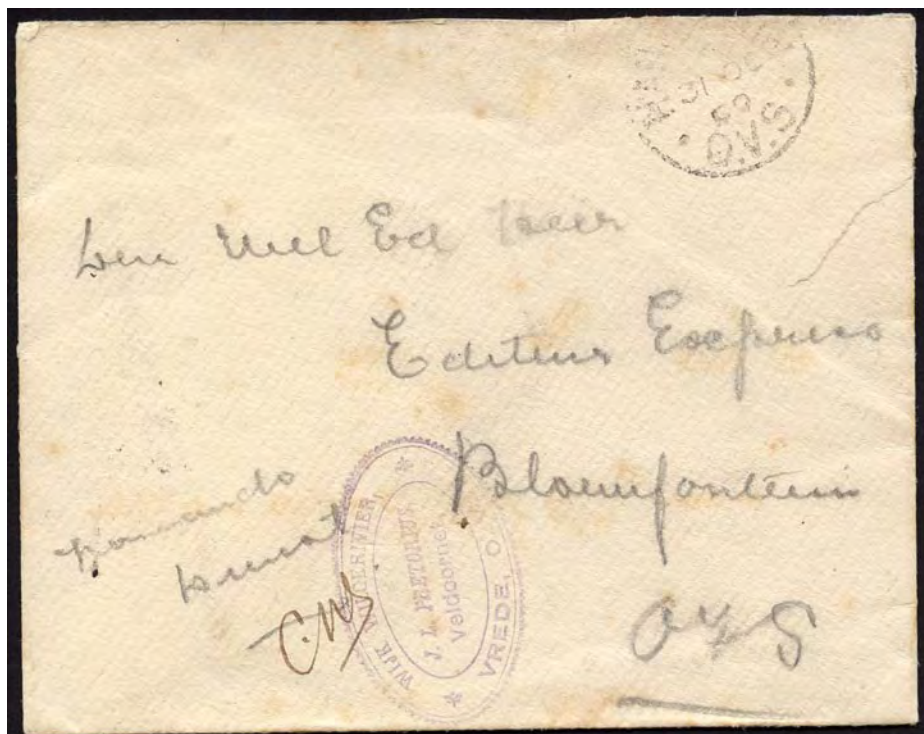 31 OC
99
O.V.S.
Den Wel Ed Heer
Editeur Express
Bloemfontein
Komando
dienst
WIJK RIVIER,
J. L. PRETORIUS,
Veldcornet
VREDE, O
OVS